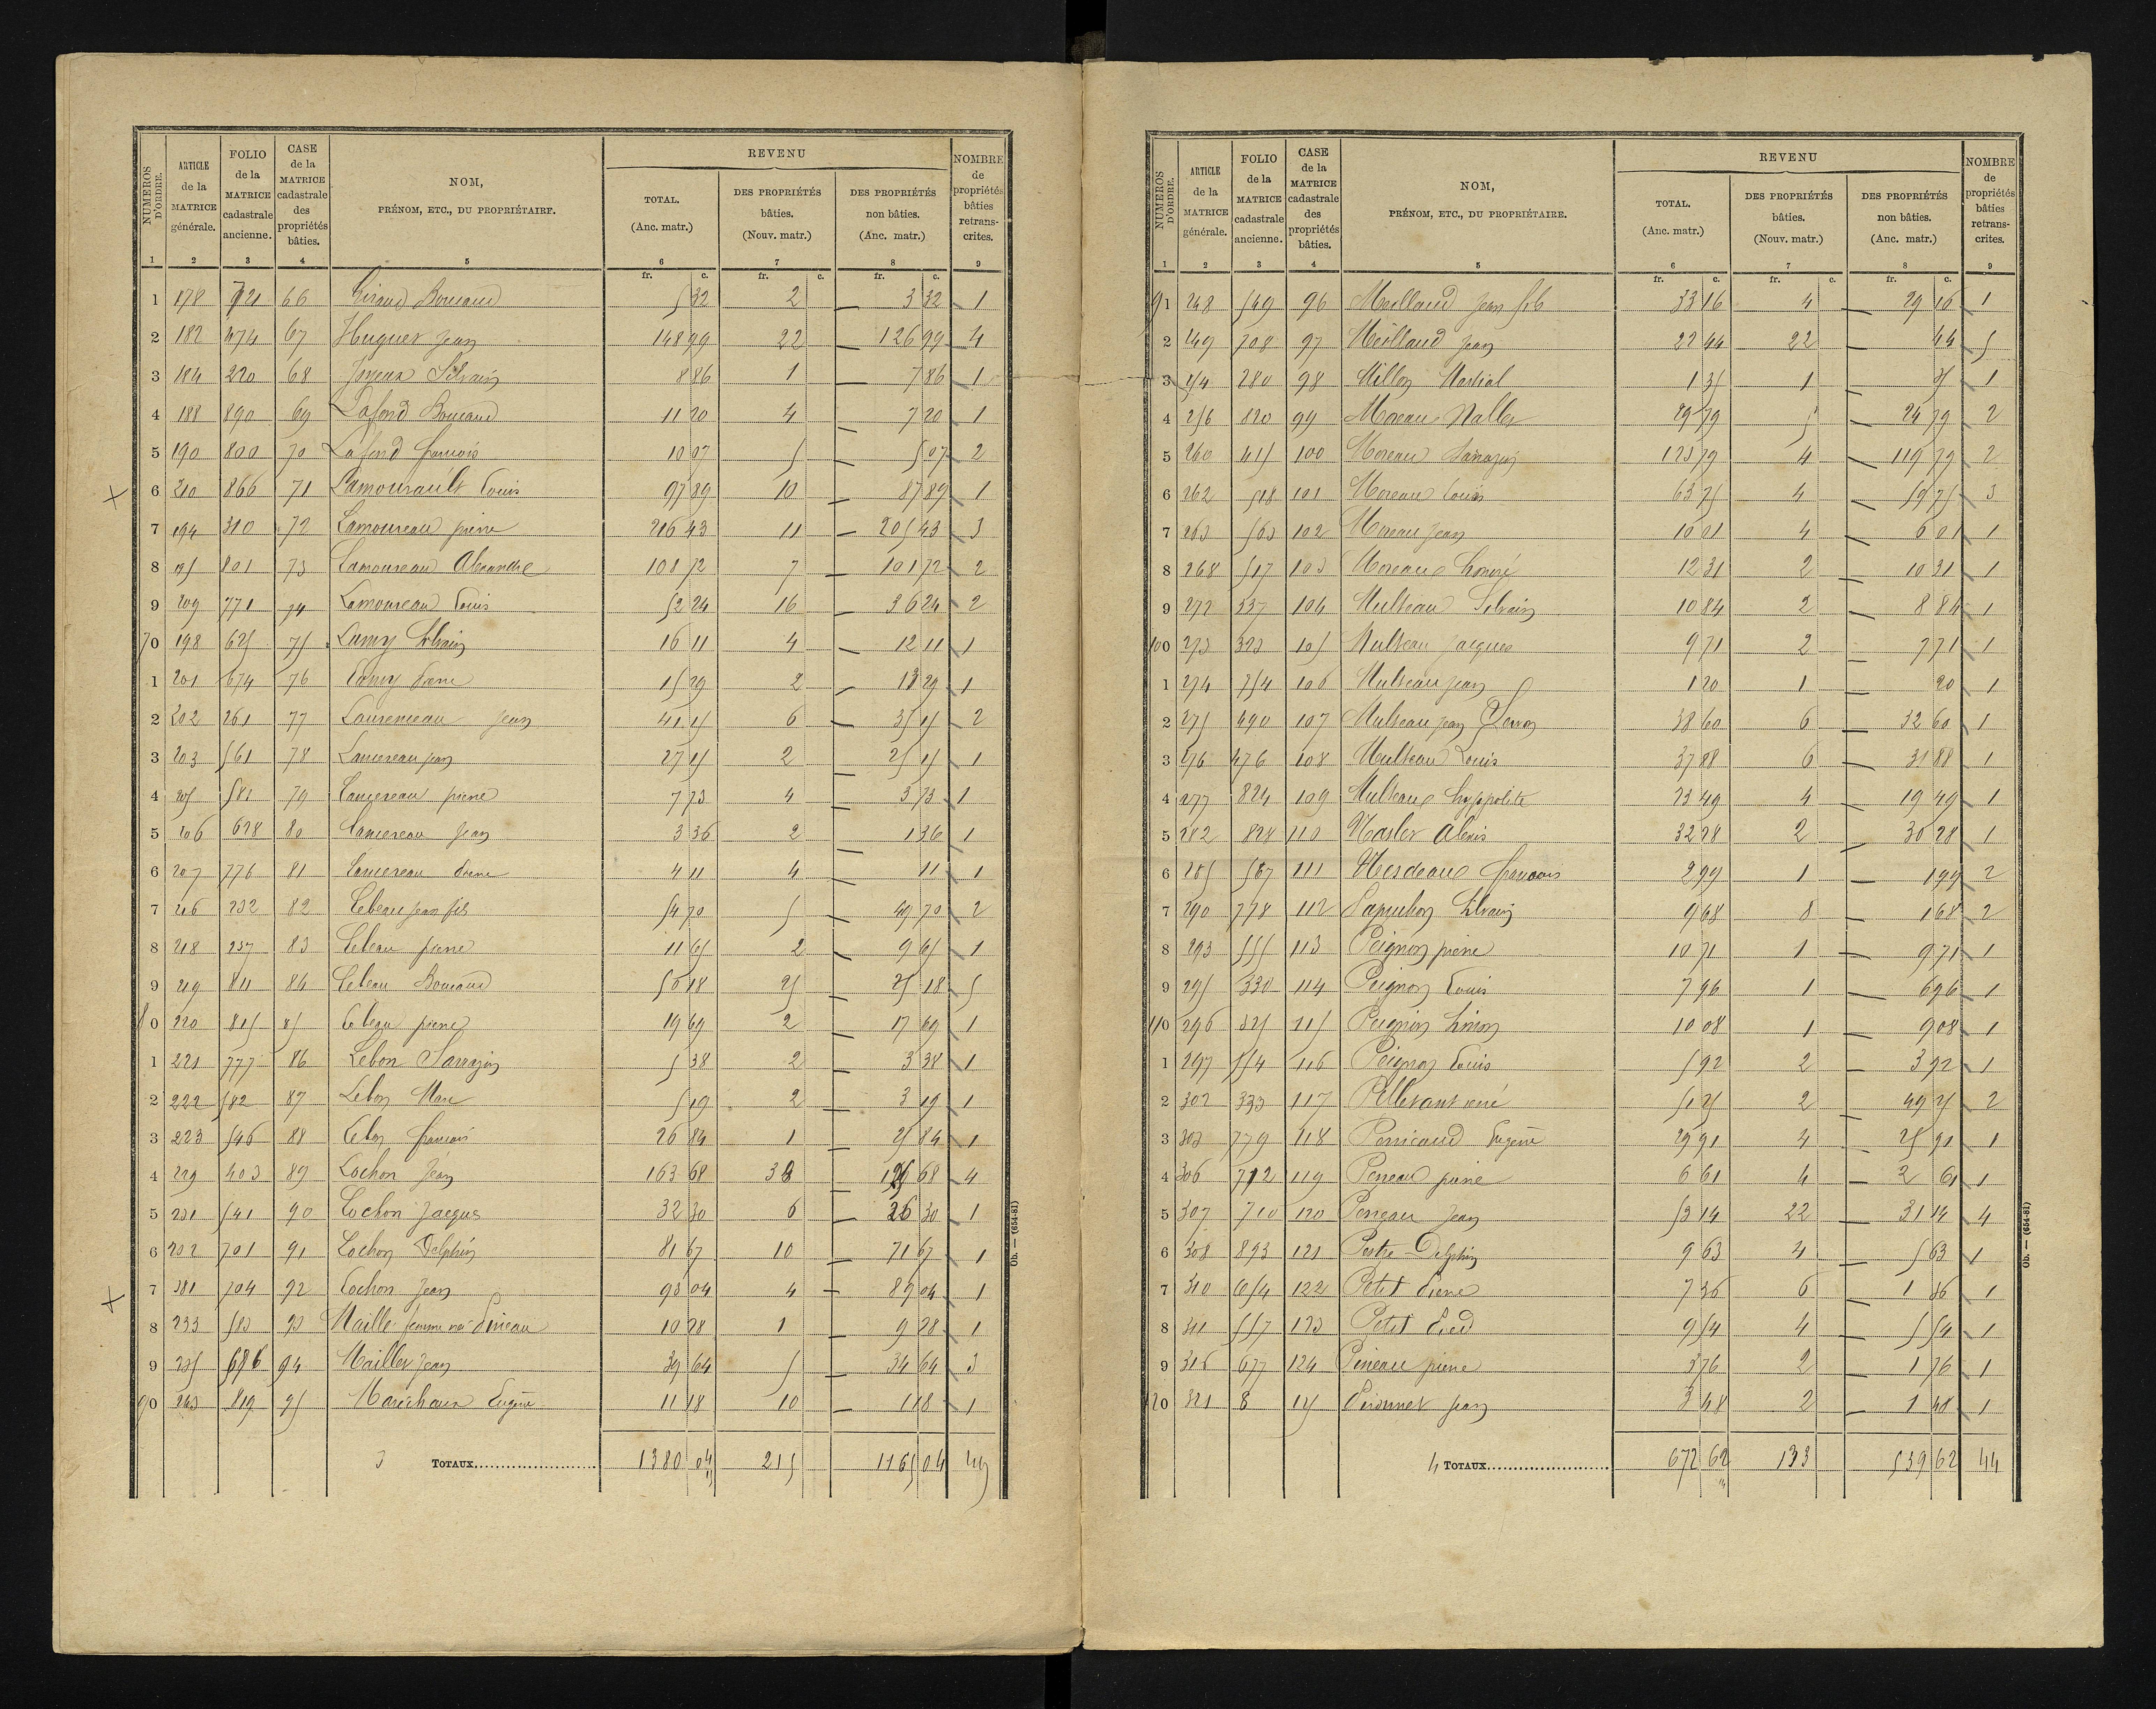 NUMÉROS D'ORDRE. | ARTICLE de la MATRICE générale. | FOLIO de la MATRICE cadastrale ancienne. | CASE de la MATRICE cadastrale des propriétés bâties. | NOM, PRÉNOM, ETC., DU PROPRIÉTAIRE. | REVENU | NOMBRE de propriétés bâties retranscrites.
TOTAL. (Anc. matr.) | DES PROPRIÉTÉS bâties. (Nouv. matr.) | DES PROPRIÉTÉS non bâties. (Anc. matr.)
1 2 3 4 5 6 7 8 9
fr. c. fr. c. fr. c.
1 178 721 66 Giraud 5 32 2 3 32 1
2 182 474 67 Huguet Jean 148 99 22 126 99 4
3 184 220 68 Joyeux Silvain 8 86 1 7 86 1
4 188 890 69 Lafond 11 20 4 7 20 1
5 190 800 70 Lafond françois 10 07 5 5 07 2
6 210 866 71 Lamourault Louis 97 89 10 87 89 1
7 194 310 72 Lamoureau pierre 216 43 11 205 43 3
8 195 801 73 Lamoureau Alexandre 108 72 7 101 72 2
9 209 771 74 Lamoureau Louis 52 24 16 36 24 2
70 198 625 75 Lamy Silvain 16 11 4 12 11 1
1 201 674 76 Lamy Pierre 15 29 2 13 29 1
2 202 261 77 Jean 41 15 6 35 15 2
3 203 561 78 Lancereau jean 27 15 2 25 15 1
4 205 581 79 Lancereau pierre 7 73 4 3 73 1
5 206 628 80 Lancereau Jean 3 36 2 1 36 1
6 207 776 81 Lancereau Pierre 4 11 4 11 1
7 216 232 82 Lebeau Jean fils 54 70 5 49 70 2
8 218 237 83 Lebeau pierre 11 65 2 9 65 1
9 219 811 84 Lebeau 50 18 25 25 18 5
80 220 815 85 Lebeau pierre 19 69 2 17 69 1
1 221 777 86 Lebon Sarrazin 5 38 2 3 38 1
2 222 582 87 Lebon Marc 5 19 2 3 19 1
3 223 546 88 Lebon francois 26 84 1 25 84 1
4 229 403 89 Lochon Jean 163 68 38 125 68 4
5 231 541 90 Lochon Jacques 32 30 6 26 30 1
6 232 701 91 Lochon Delphin 81 67 10 71 67 1
7 381 704 92 Lochon Jean 93 04 4 89 04 1
8 233 583 93 Maillé femme née Pineau 10 28 1 9 28 1
9 235 686 94 Maillet Jean 39 64 5 34 64 3
90 243 819 95 Maréchaux Eugène 11 18 10 1 18 1
3 TOTAUX 1380 04 215 1165 04 49
Ob. — (654-81)
NUMÉROS D'ORDRE. | ARTICLE de la MATRICE générale. | FOLIO de la MATRICE cadastrale ancienne. | CASE de la MATRICE cadastrale des propriétés bâties. | NOM, PRÉNOM, ETC., DU PROPRIÉTAIRE. | REVENU | NOMBRE de propriétés bâties retranscrites.
TOTAL. (Anc. matr.) | DES PROPRIÉTÉS bâties. (Nouv. matr.) | DES PROPRIÉTÉS non bâties. (Anc. matr.)
1 2 3 4 5 6 7 8 9
fr. c. fr. c. fr. c.
91 248 549 96 Meillaud Jean fils 33 16 4 29 16 1
2 249 708 97 Meillaud Jean 22 44 22 44 5
3 254 280 98 Millon Martial 1 35 1 35 1
4 256 820 99 Moreau 29 79 5 24 79 2
5 260 415 100 Moreau Sarrazin 123 79 4 119 79 2
6 262 518 101 Moreau Louis 63 75 4 59 75 3
7 263 563 102 Moreau Jean 10 01 4 6 01 1
8 268 517 103 Moreau honoré 12 31 2 10 31 1
9 272 337 104 Multeau Silvain 10 84 2 8 84 1
100 273 323 105 Multeau Jacques 9 71 2 7 71 1
1 274 754 106 Multeau Jean 1 20 1 20 1
2 275 490 107 Multeau Jean 38 60 6 32 60 1
3 276 476 108 Multeau Louis 37 88 6 31 88 1
4 277 824 109 Multeau hyppolite 23 49 4 19 49 1
5 282 828 110 Alexis 32 28 2 30 28 1
6 285 567 111 francois 2 99 1 1 99 2
7 290 778 112 Silvain 9 68 8 1 68 2
8 293 555 113 Peignon pierre 10 71 1 9 71 1
9 295 330 114 Peignon Louis 7 96 1 6 96 1
110 296 325 115 Peignon Simon 10 08 1 9 08 1
1 297 554 116 Peignon Louis 5 92 2 3 92 1
2 302 333 117 Pelletant réné 51 25 2 49 25 2
3 303 779 118 Perricaud Eugène 29 91 4 25 91 1
4 306 712 119 Perreau pierre 6 61 4 2 61 1
5 307 710 120 Perreau Jean 53 14 22 31 14 4
6 308 893 121 Delphin 9 63 4 5 63 1
7 310 654 122 Petit Pierre 7 36 6 1 36 1
8 311 557 123 Petit 9 54 4 5 54 1
9 316 677 124 Pineau pierre 3 76 2 1 76 1
120 321 8 125 Pironnet Jean 3 48 2 1 48 1
4 TOTAUX 672 62 133 539 62 44
Ob. — (654-81)